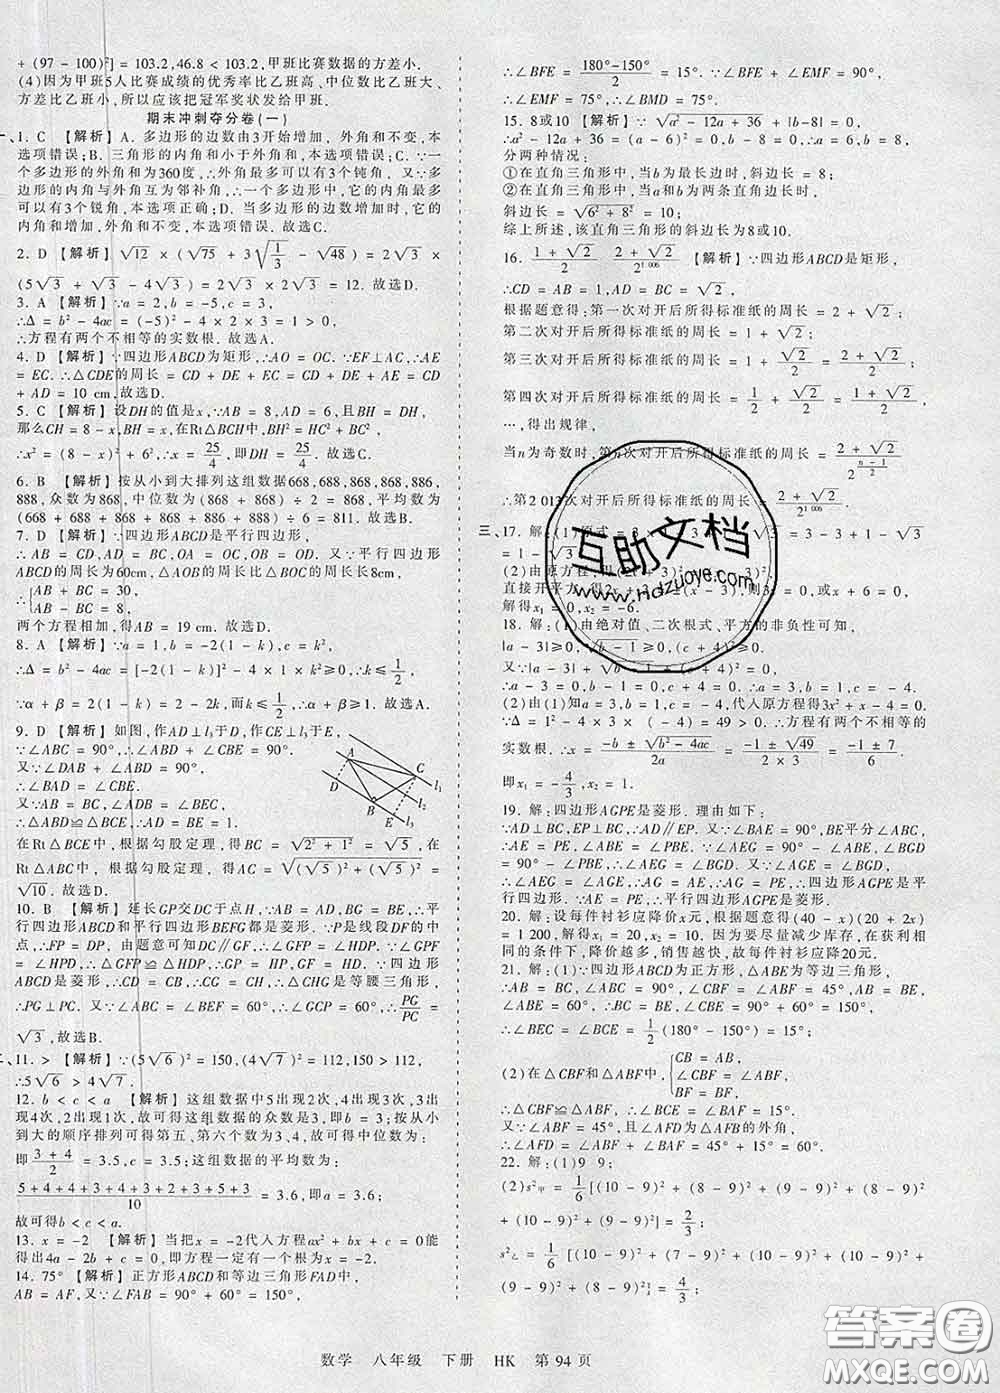 + (97 - 100)²] = 103.2, 46.8 < 103.2, 甲班比赛数据的方差小.
(4)因为甲班5人比赛成绩的优秀率比乙班高、中位数比乙班大、
方差比乙班小,所以应该把冠军奖状发给甲班.
期末冲刺夺分卷(一)
一、1. C 【解析】A. 多边形的边数由3开始增加,外角和不变,本
选项错误;B. 三角形的内角和小于外角和,本选项错误;C. ∵一
个多边形的外角和为360度,∴外角最多可以有3个钝角,又∵多
边形的内角与外角互为邻补角,∴一个多边形中,它的内角最多
可以有3个锐角,本选项正确;D. 当多边形的边数增加时,它的
内角和增加,外角和不变,本选项错误.故选C.
2. D 【解析】√12 × (√75 + 3√(1/3) - √48) = 2√3 ×
(5√3 + √3 - 4√3) = 2√3 × 2√3 = 12.故选D.
3. A 【解析】∵a = 2,b = -5,c = 3,
∴Δ = b² - 4ac = (-5)² - 4 × 2 × 3 = 1 > 0,
∴方程有两个不相等的实数根.故选A.
4. D 【解析】∵四边形ABCD为矩形,∴AO = OC. ∵EF⊥AC,∴AE
= EC. ∴△CDE的周长 = CD + DE + EC = CD + DE + AE = CD +
AD = 10 cm,故选D.
5. C 【解析】设DH的值是x,∵AB = 8,AD = 6,且BH = DH,
那么CH = 8 - x,BH = x,在Rt△BCH中,BH² = HC² + BC²,
∴x² = (8 - x)² + 6²,∴x = 25/4,即DH = 25/4. 故选C.
6. B 【解析】按从小到大排列这组数据668,668,868,868,886,
888,众数为868,中位数为(868 + 868) ÷ 2 = 868,平均数为
(668 + 668 + 868 + 868 + 886 + 888) ÷ 6 = 811. 故选B.
7. D 【解析】∵四边形ABCD是平行四边形,
∴AB = CD,AD = BC,AO = OC,OB = OD. 又∵平行四边形
ABCD的周长为60cm,△AOB的周长比△BOC的周长长8cm,
∴{AB + BC = 30,
AB - BC = 8,
两个方程相加,得AB = 19 cm.故选D.
8. A 【解析】∵a = 1,b = -2(1 - k),c = k²,
∴Δ = b² - 4ac = [-2(1 - k)]² - 4 × 1 × k² ≥ 0,∴k ≤ 1/2,
∵α + β = 2(1 - k) = 2 - 2k,∴α + β ≥ 1. 故选A.
9. D 【解析】如图,作AD⊥l₃于D,作CE⊥l₃于E,
∵∠ABC = 90°,∴∠ABD + ∠CBE = 90°.
又∵∠DAB + ∠ABD = 90°,
∴∠BAD = ∠CBE.
又∵AB = BC,∠ADB = ∠BEC,
∴△ABD≌△BCE,∴AD = BE = 1.
在Rt△BCE中,根据勾股定理,得BC = √(2² + 1²) = √5,在
Rt△ABC中,根据勾股定理,得AC = √((√5)² + (√5)²) =
√10. 故选D.
A C D B E l₁ l₂ l₃
10. B 【解析】延长GP交DC于点H,∵四边形ABCD是平行四边形,∴平
行四边形ABCD和平行四边形BEFG都是菱形. ∵P是线段DF的中
点,∴FP = DP,由题意可知DC∥GF,∴∠GFP = ∠HDP. ∵∠GPF
= ∠HPD,∴△GFP≌△HDP,∴GP = HP,GF = HD. ∵四边形
ABCD是菱形,∴CD = CB,∴CG = CH,∴△CHG是等腰三角形,
∴PG⊥PC. 又∵∠ABC = ∠BEF = 60°,∴∠GCP = 60°,∴PG/PC =
√3,故选B.
二、11. > 【解析】∵(5√6)² = 150,(4√7)² = 112,150 > 112,
∴5√6 > 4√7.
12. b < c < a 【解析】这组数据中5出现2次,1出现1次,3出现
4次,4出现2次,2出现1次,故可得这组数据的众数是3,即b = 3;按从小
到大的顺序排列可得第五、第六个数为3、4,故可得中位数为:
即(3 + 4)/2 = 3.5,故c = 3.5;这组数据的平均数为:
(5+4+4+4+3+3+3+2+5+3)/10 = 3.6,即a = 3.6,
故可得b < c < a.
13. x = -2 【解析】当把x = -2代入方程ax² + bx + c = 0能
得出4a - 2b + c = 0,即方程一定有一个根为x = -2.
14. 75° 【解析】正方形ABCD和等边三角形FAD中,
AB = AF,又∵∠FAB = 90° + 60° = 150°,
∴∠BFE = (180°-150°)/2 = 15°,∴∠BFE + ∠EMF = 90°,
∴∠EMF = 75°,∴∠BMD = 75°.
15. 8或10 【解析】∵√(a² - 12a + 36) + |b - 8| = 0,
∴a² - 12a + 36 = 0,b - 8 = 0,∴a = 6,b = 8,
分两种情况:
①在直角三角形中,当b为最长边时,斜边长 = 8;
②在直角三角形中,当a和b为两条直角边时,
斜边长 = √(6² + 8²) = 10;
综上所述,该直角三角形的斜边长为8或10.
16. (1 + √2)/2 (2 + √2)/2^1 006 【解析】∵四边形ABCD是矩形,
∴CD = AB = 1,AD = BC = √2,
根据题意得:第一次对开后所得标准纸的周长 = 2 + √2,
第二次对开后所得标准纸的周长 = 1 + √2,
第三次对开后所得标准纸的周长 = 1 + √2/2 = (2 + √2)/2,
第四次对开后所得标准纸的周长 = 1/2 + √2/2 = (1 + √2)/2,
…,得出规律,
当n为奇数时,第n次对开后所得标准纸的周长 = (2 + √2)/2^((n-1)/2),
∴第2 013次对开后所得标准纸的周长 = (2 + √2)/2^1 006.
三、17. 解:(1)原式 = 3 × √3 = 3 - 3 + 1 - √3
= 1 - √3
(2)由原方程,得(2x + 3)²
直接开平方,得2x + 3 = ±(x - 3),则3x = 0,或x + 6 = 0,
解得x₁ = 0,x₂ = -6.
18. 解:(1)由绝对值、二次根式、平方的非负性可知,
|a - 3| ≥ 0,√(b - 1) ≥ 0,(c + 4)² ≥ 0,
又∵|a - 3| + √(b - 1) + (c + 4)² = 0,
∴a - 3 = 0,b - 1 = 0,c + 4 = 0,
(2)由(1)知a = 3,b = 1,c = -4,代入原方程得3x² + x - 4 = 0,
∵Δ = 1² - 4 × 3 × (-4) = 49 > 0,∴方程有两个不相等的
实数根. ∴x = (-b ± √(b² - 4ac))/2a = (-1 ± √49)/(2×3) = (-1 ± 7)/6,
即x₁ = -4/3,x₂ = 1.
19. 解:四边形AGPE是菱形. 理由如下:
∵AD⊥BC,EP⊥BC,∴AD∥EP. 又∵∠BAE = 90°,BE平分∠ABC,
∴AE = PE,∠ABE = ∠PBE. ∵∠AEG = 90° - ∠ABE,∠BGD =
90° - ∠PBE,∴∠AEG = ∠BGD. 又∵∠AGE = ∠BGD,
∴∠AEG = ∠AGE,∴AG = AE,∴AG = PE,∴四边形AGPE是平
行四边形. 又∵AE = PE,∴四边形AGPE是菱形.
20. 解:设每件衬衫应降价x元,根据题意得(40 - x)(20 + 2x)
= 1 200,解得x₁ = 20,x₂ = 10. 因为要尽量减少库存,在获利相
同的条件下,降价越多,销售越快,故每件衬衫应降20元.
21. 解:(1)∵四边形ABCD为正方形,△ABE为等边三角形,
∴AB = BC = BE,∠ABF = ∠CBF = 45°,AB = BE,
∠ABC = 90°,∠ABE = 60°,∴∠CBE = 90° + 60° = 150°,
∴∠BEC = ∠BCE = 1/2(180° - 150°) = 15°;
(2)在△CBF和△ABF中,{CB = AB,
∠CBF = ∠ABF,
BF = BF,
∴△CBF≌△ABF(SAS),∴∠BAF = ∠BCE = 15°.
又∵∠ABF = 45°,且∠AFD为△AFB的外角,
∴∠AFD = ∠ABF + ∠BAF = 45° + 15° = 60°.
22. 解:(1)9 9;
(2)s²甲 = 1/6[(10 - 9)² + (8 - 9)² + (9 - 9)² + (8 - 9)²
+ (10 - 9)² + (9 - 9)²] = 2/3;
s²乙 = 1/6[(10 - 9)² + (7 - 9)² + (10 - 9)² + (10 - 9)²
+ (9 - 9)² + (8 - 9)²] = 4/3;
互助文档
www.Hdzuoye.com
数学 八年级 下册 HK 第94页
答案圈
MXQE.COM